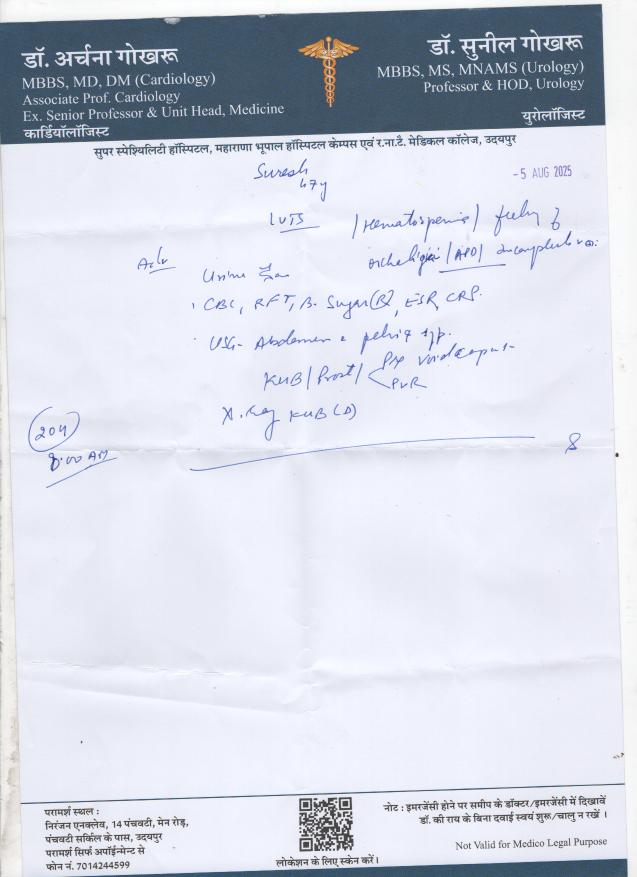 डॉ. अर्चना गोखरू
MBBS, MD, DM (Cardiology)
Associate Prof. Cardiology
Ex. Senior Professor & Unit Head, Medicine
कार्डियॉलॉजिस्ट
डॉ. सुनील गोखरू
MBBS, MS, MNAMS (Urology)
Professor & HOD, Urology
युरोलॉजिस्ट
सुपर स्पेश्यिलिटी हॉस्पिटल, महाराणा भूपाल हॉस्पिटल केम्पस एवं र.ना.टै. मेडिकल कॉलेज, उदयपुर
Suresh
47y
-5 AUG 2025
LUTS /Hematospermia/
Adv
Urine
CBC, RFT, B. Sugar (R), ESR, CRP.
USG- Abdomen
KUB/Prost/ Pre void
PVR
X.Ray KUB (D)
204
8:00 AM
परामर्श स्थल :
निरंजन एनक्लेव, 14 पंचवटी, मेन रोड़,
पंचवटी सर्किल के पास, उदयपुर
परामर्श सिर्फ अपॉईन्मेन्ट से
फोन नं. 7014244599
लोकेशन के लिए स्केन करें।
नोट : इमरजेंसी होने पर समीप के डॉक्टर/इमरजेंसी में दिखावें
डॉ. की राय के बिना दवाई स्वयं शुरू/चालु न रखें ।
Not Valid for Medico Legal Purpose